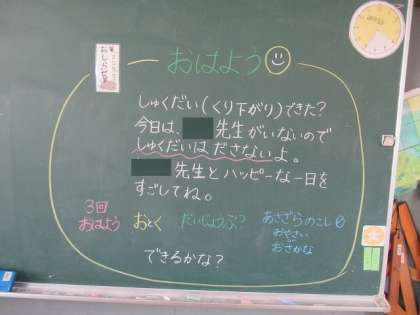 おはよう
しゅくだい(くり下がり)できた?
今日は、先生がいないので
しゅくだいは ださないよ。
先生とハッピーな一日を
すごしてね。
3回
おはよう
おとく
だいじょうぶ?
あさざらのこし0
おやさい
おさかな
できるかな?